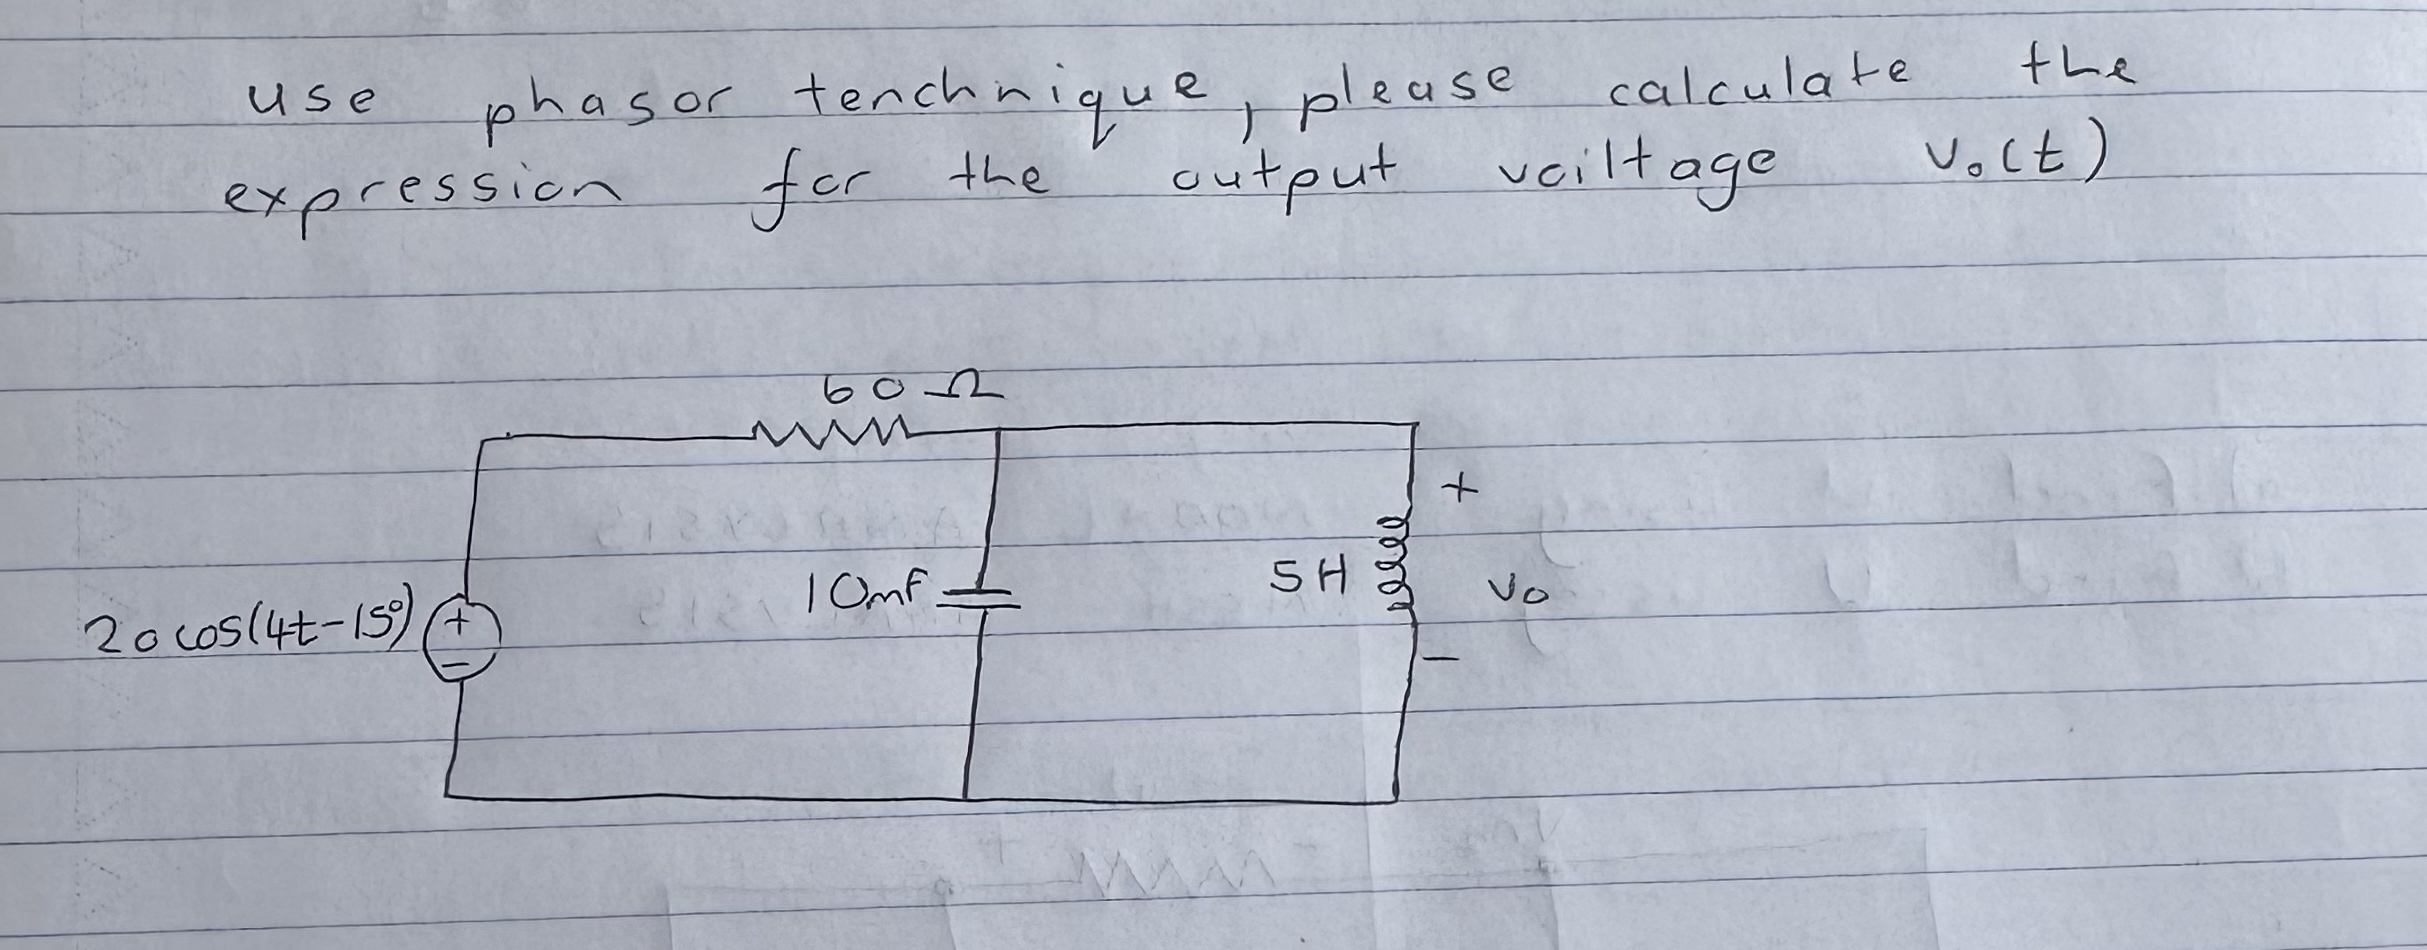 use phasor tenchnique, please calculate the
expression for the output voiltage v₀(t)
60 Ω
+
10mf
5H
v₀
20 cos(4t-15°)
+
-
-